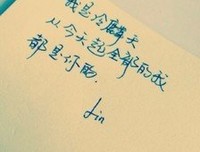 我是冷麟天
从今天起全部的我
都是你的.
Lin